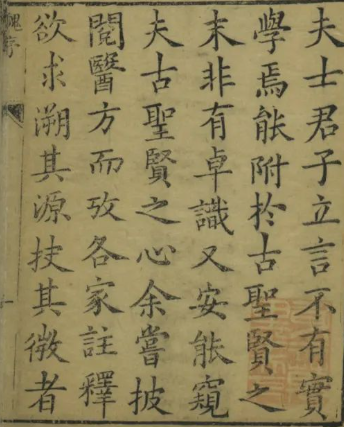 夫士君子立言不有實
學焉能附於古聖賢之
末非有卓識又安能窺
夫古聖賢之心余嘗披
閱醫方而攷各家註釋
欲求溯其源抉其微者